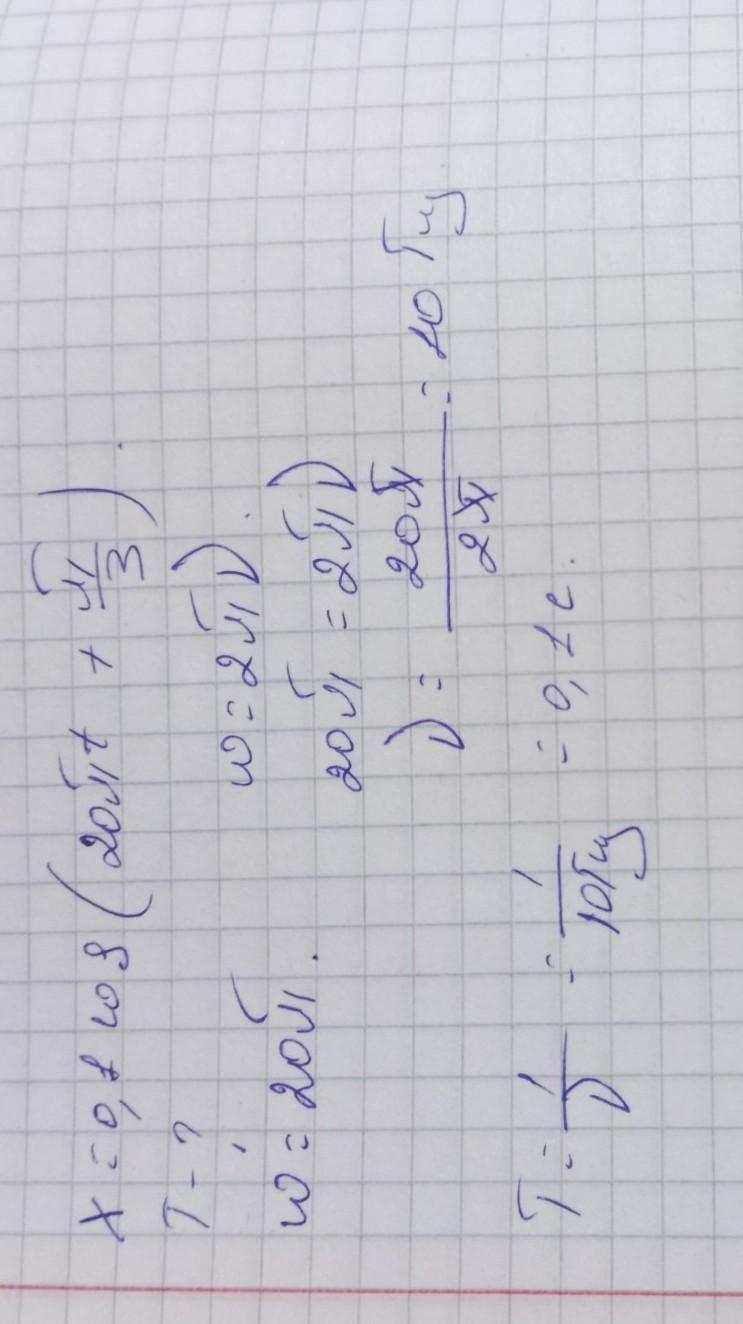 x = 0,1 cos (20πt + π/3).
T - ?
ω = 2πν.
ω = 20π.
20π = 2πν
ν = 20π/2π = 10 Гц
T = 1/ν = 1/10Гц = 0,1 с.